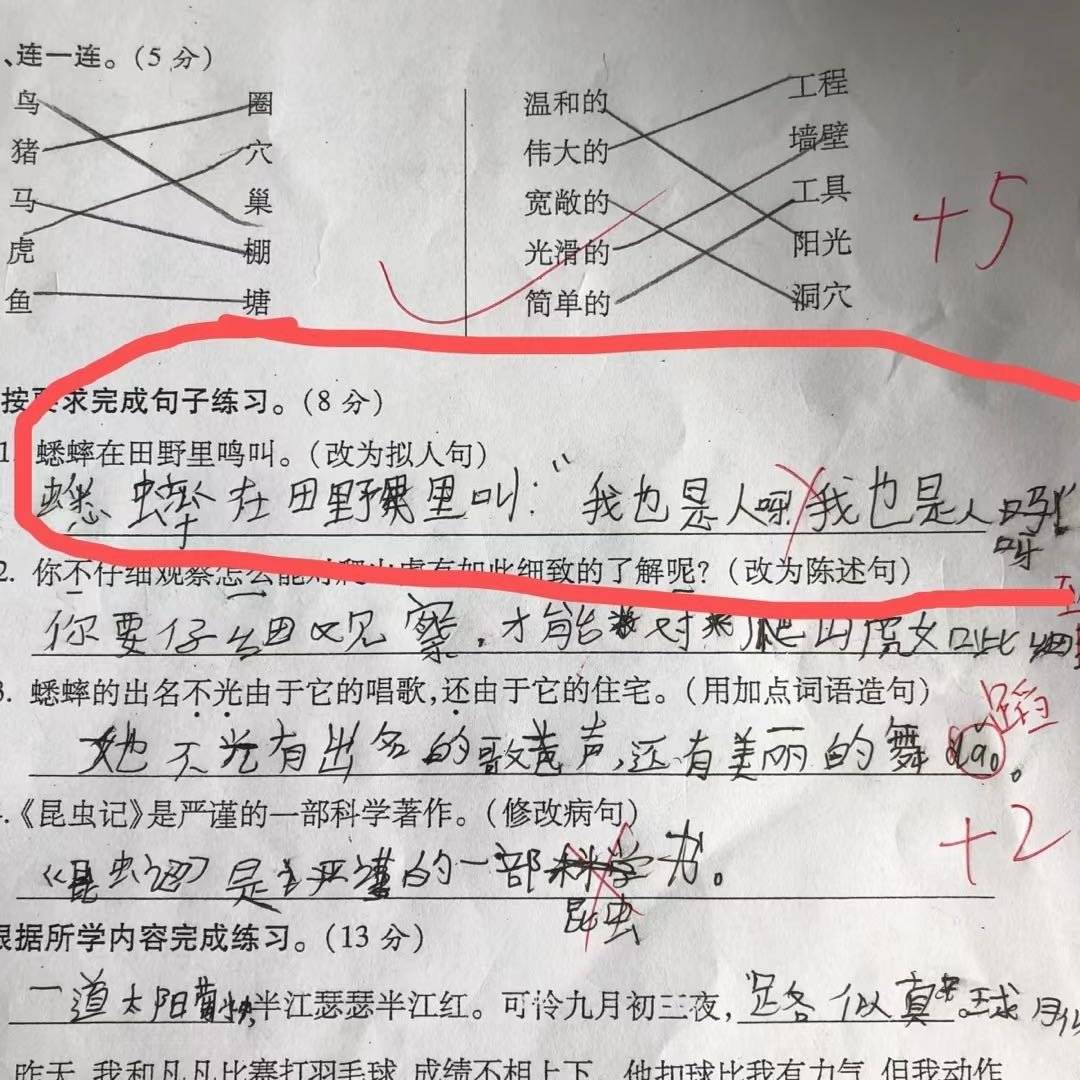 、连一连。(5 分)
鸟 圈 温和的 工程
猪 穴 伟大的 墙壁
马 巢 宽敞的 工具
虎 棚 光滑的 阳光
鱼 塘 简单的 洞穴
+5
按要求完成句子练习。(8 分)
1. 蟋蟀在田野里鸣叫。(改为拟人句)
蟋蟀在田野里叫:“我也是人呀我也是人
呀
2. 你不仔细观察怎么能对爬山虎有如此细致的了解呢?(改为陈述句)
你要仔细观察,才能对爬山虎又如此细
3. 蟋蟀的出名不光由于它的唱歌,还由于它的住宅。(用加点词语造句)
蹈
她不光有出名的歌声,还有美丽的舞dǎo。
《昆虫记》是严谨的一部科学著作。(修改病句)
+2
《昆虫记》是严谨的一部科学书。
昆虫
根据所学内容完成练习。(13 分)
一道太阳 半江瑟瑟半江红。可怜九月初三夜,路似真 球月
昨天,我和凡凡比赛打羽毛球,成绩不相上下。他扣球比我有力气,但我动作